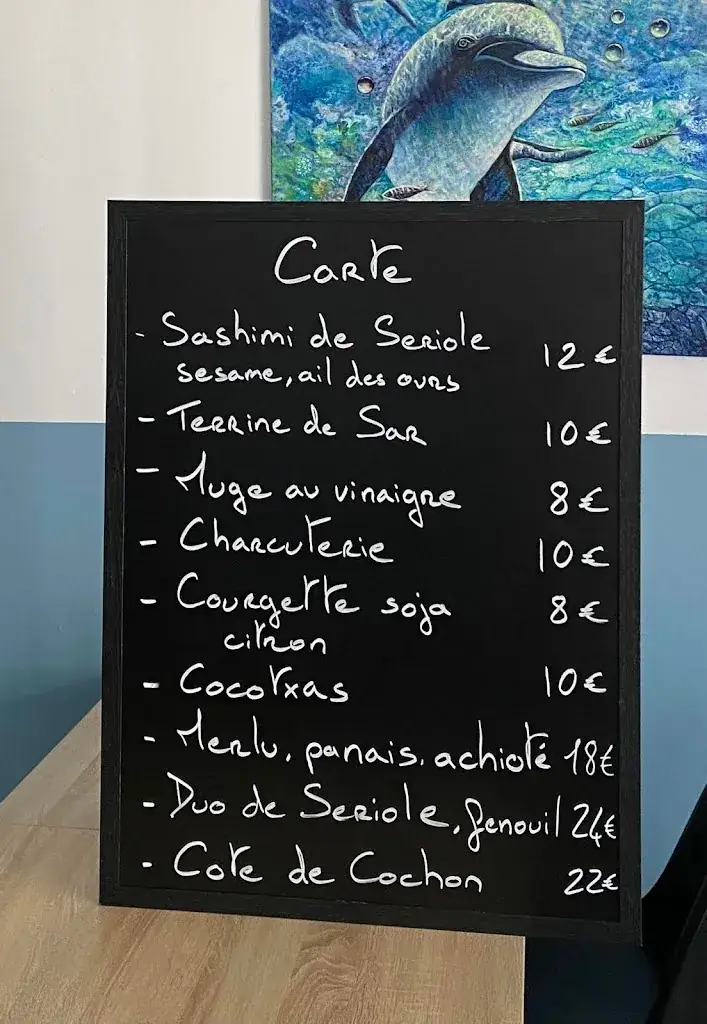 Carte
- Sashimi de Seriole 12 €
sesame, ail des ours
- Terrine de Sar 10 €
- Muge au vinaigre 8 €
- Charcuterie 10 €
- Courgette soja 8 €
citron
- Cocotxas 10 €
- Merlu, panais, achioté 18€
- Duo de Seriole, fenouil 24€
- Cote de Cochon 22€